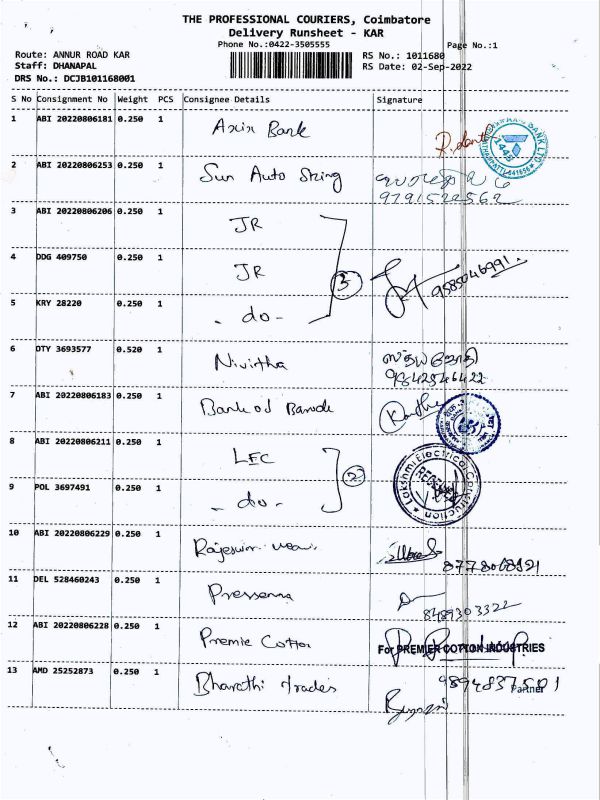 THE PROFESSIONAL COURIERS, Coimbatore
Delivery Runsheet - KAR
Phone No.:0422-3505555
Page No.:1
Route: ANNUR ROAD KAR
RS No.: 1011680
Staff: DHANAPAL
RS Date: 02-Sep-2022
DRS No.: DCJB101168001
S No Consignment No Weight PCS Consignee Details Signature
1 ABI 20220806181 0.250 1 Axin Bank
2 ABI 20220806253 0.250 1 Sun Auto String
9791522562
3 ABI 20220806206 0.250 1 JR
4 DDG 409750 0.250 1 JR 3 9585046991
5 KRY 28220 0.250 1 - do -
6 DTY 3693577 0.520 1 Nivirtha
9842546422
7 ABI 20220806183 0.250 1 Bank od
8 ABI 20220806211 0.250 1 LEC 2 Lakshmi Electrical Construction
9 POL 3697491 0.250 1 - do -
10 ABI 20220806229 0.250 1
11 DEL 528460243 0.250 1 Pressenna
8489303322
12 ABI 20220806228 0.250 1 Premie Cotton For PREMIER COTTON INDUSTRIES
13 AMD 25252873 0.250 1 Bharathi trades
Partner